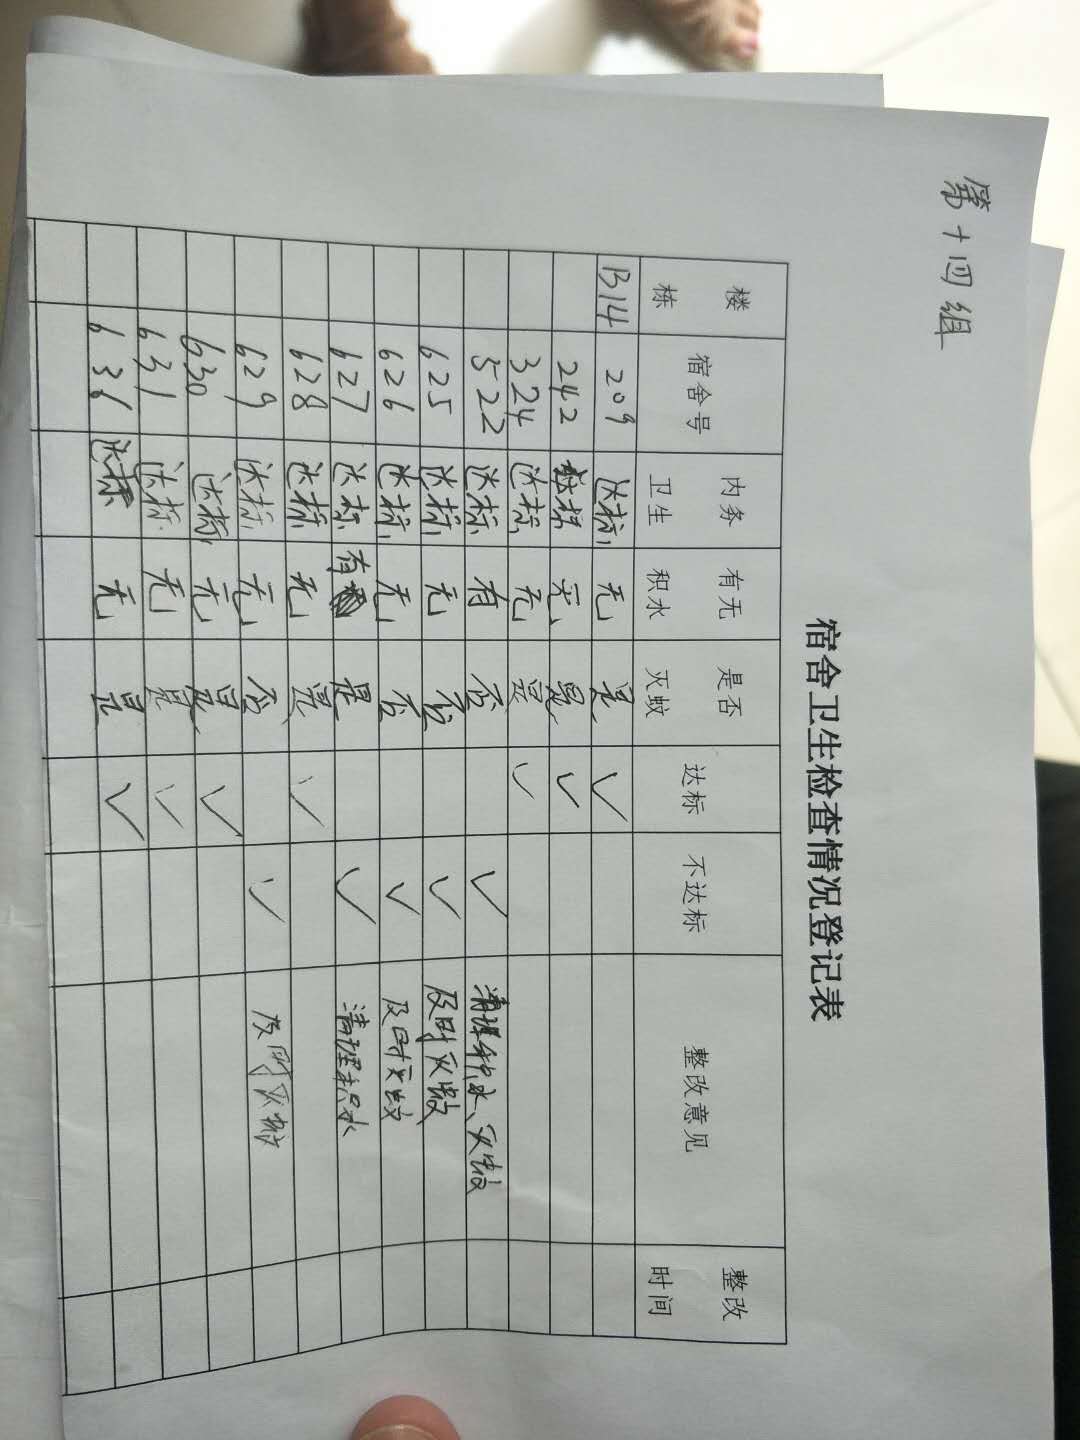 第十四组
宿舍卫生检查情况登记表
楼栋 宿舍号 内务卫生 有无积水 是否灭蚊 达标 不达标 整改意见 整改时间
B14 209 达标 无 是 ✓
242 达标 无 是 ✓
324 达标 无 是 ✓
522 达标 有 否 ✓ 清理积水、灭蚊
625 达标 无 否 ✓ 及时灭蚊
626 达标 无 否 ✓ 及时灭蚊
627 达标 有 是 ✓ 清理积水
628 达标 无 是 ✓
629 达标 无 否 ✓ 及时灭蚊
630 达标 无 是 ✓
631 达标 无 是 ✓
636 达标 无 是 ✓